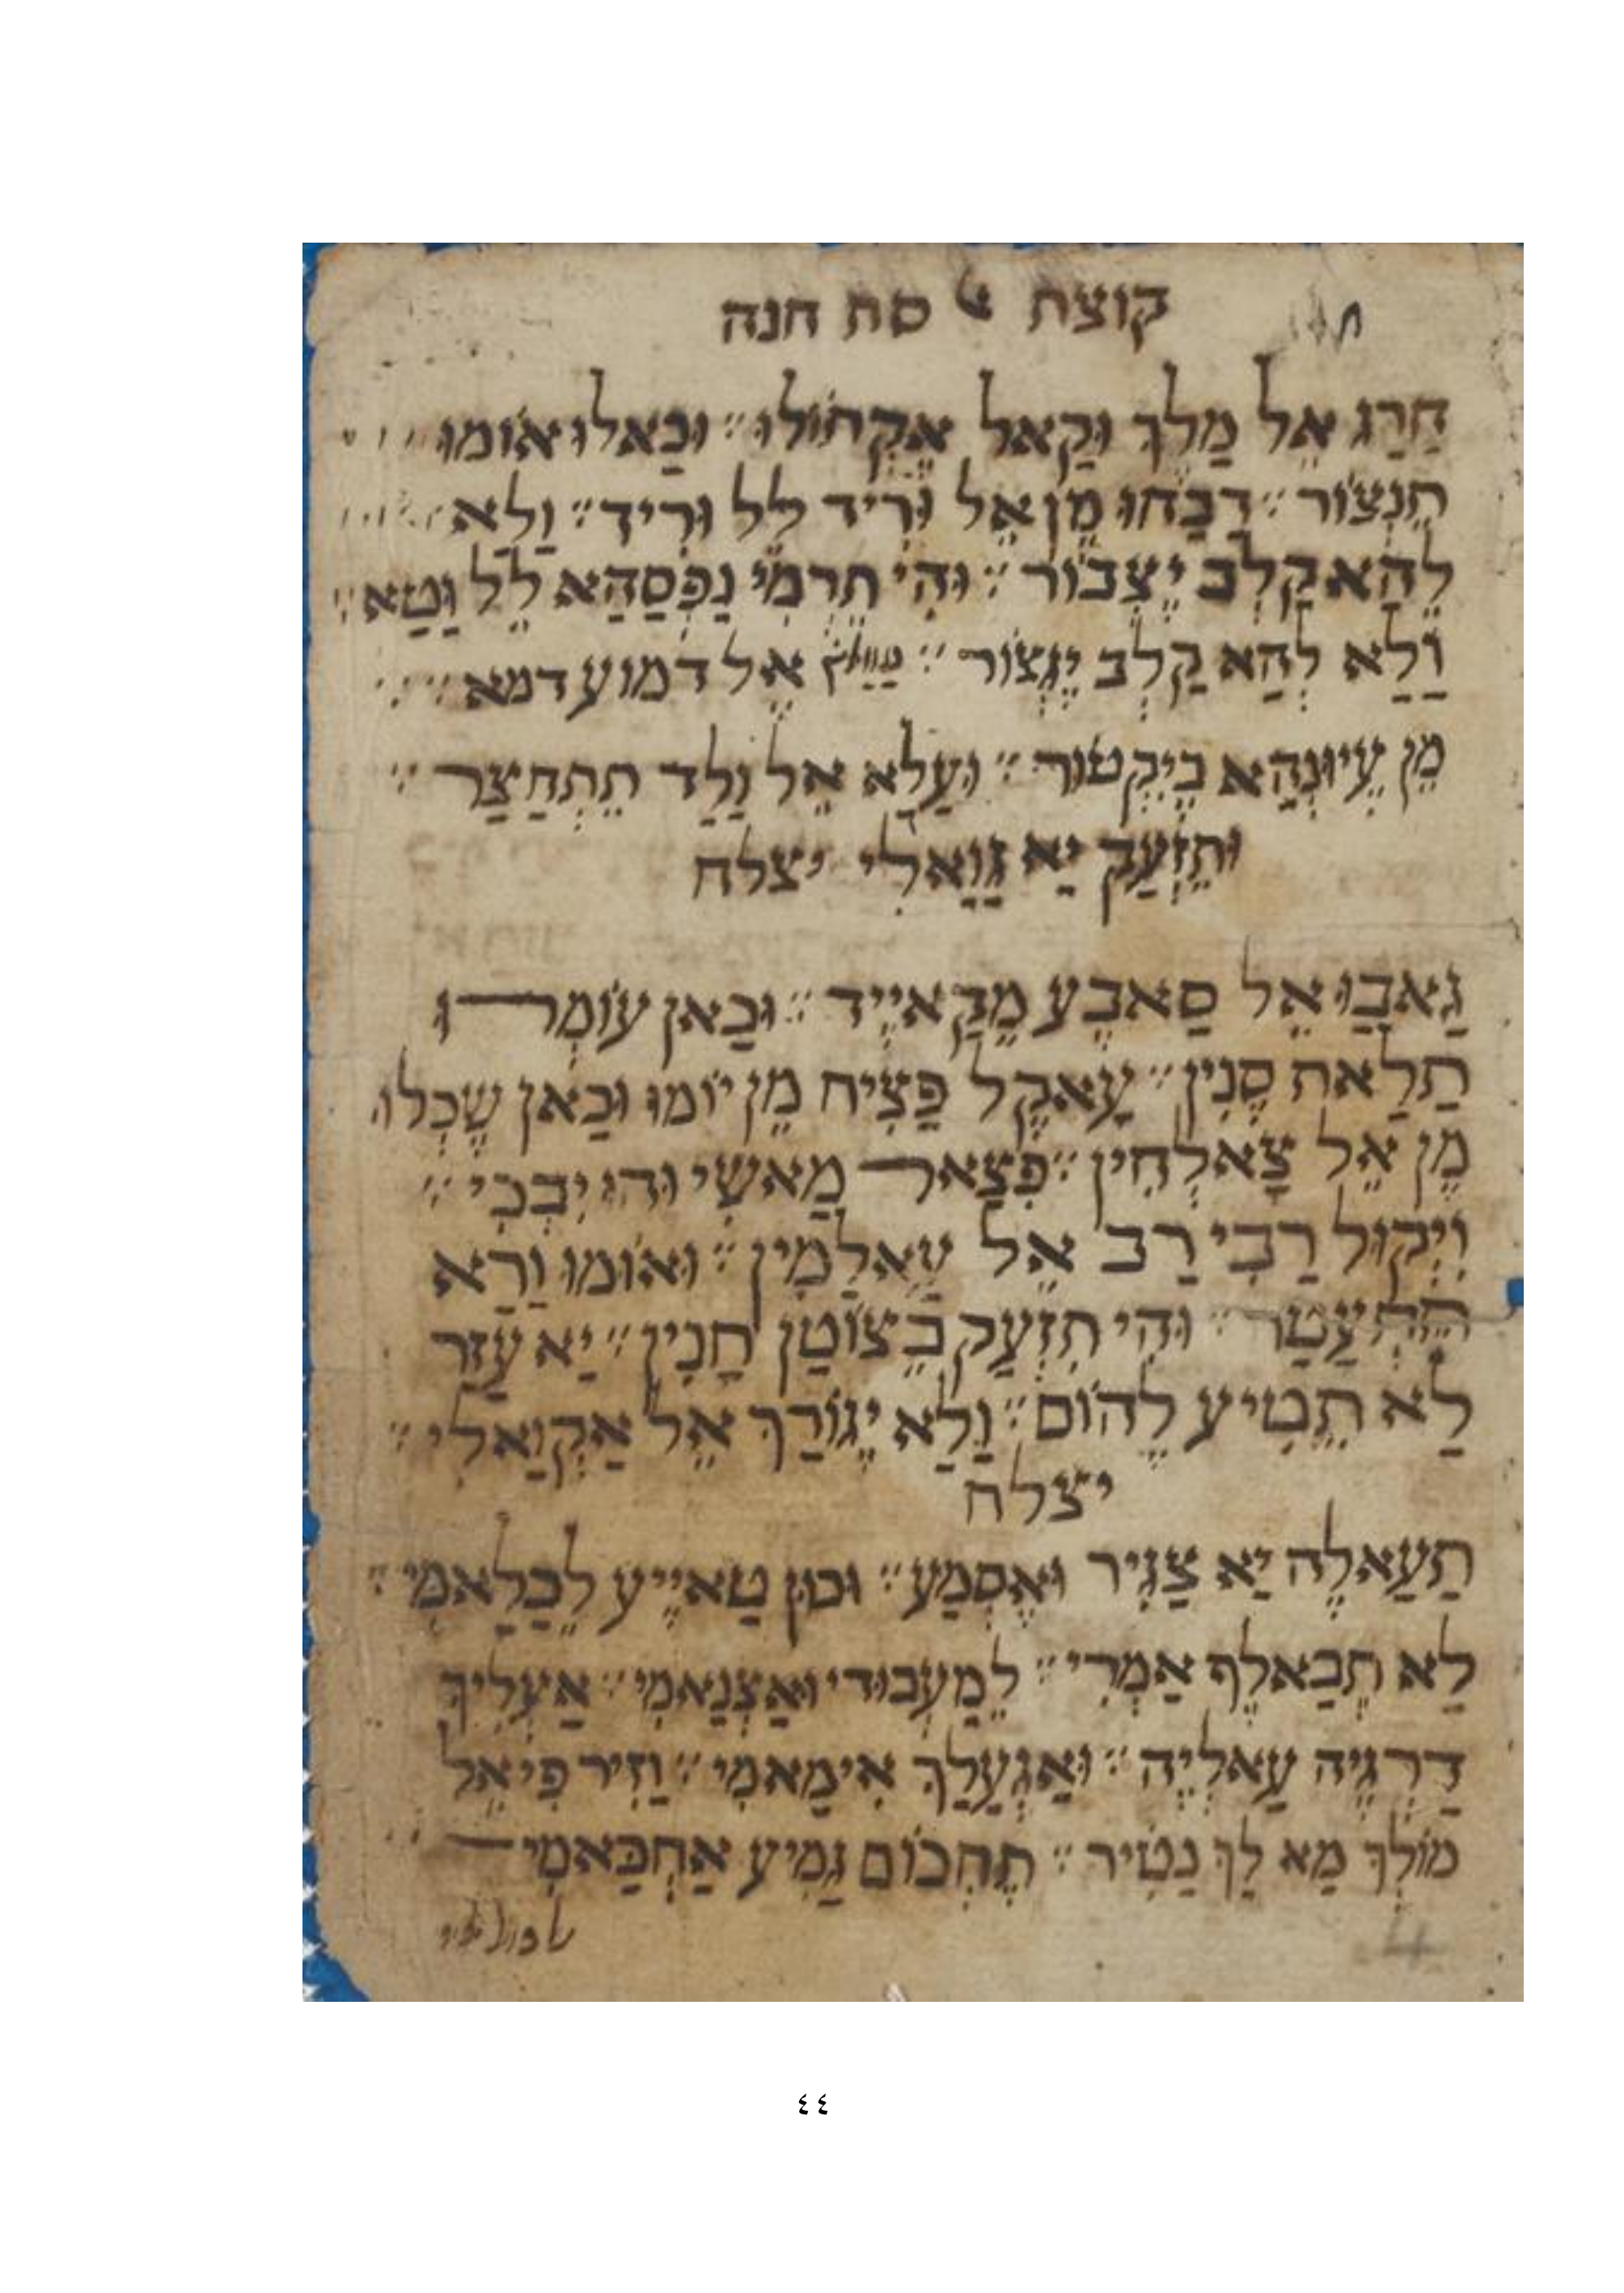 קוצת סת חנה
חַרַג אֵל מַלֶךּ וּקַאל אֶקְתוֹלוּ ׃ וּכַאלוּ אוֹמוּ
תִנְצוֹר ׃ דַבַּחוּ מֵן אֵל וְרִיד לֵל וּרִיד ׃ וַלַא
לֵהַא קַלְב יֶצְבּוֹר ׃ וּהִי תֶרְמִי נַפְסַהַא לֵל וַטַא ׃
וַלַא לְהַא קַלְב יֶנְצוֹר ׃ אֶל דמוע דמא
מֵן עֶיוּנְהַא בֶיקְטוֹר ׃ וּעַלַא אֵל וַלַד תֵתְחַצַר ׃
וּתֵזְעַק יַא גוַאלִי יצלח
גַאבַּוּ אֵל סַאבֶע מֵקַאיֶיד ׃ וּכַאן עוֹמְרוּ
תַלַאת סֶנִין ׃ עָאקֶל פַצִיח מֵן יוֹמוּ וּכַאן שֶכְלוּ
מֵן אֵל צַאלְחִין ׃ פְצַאר מַאשִי וּהוּ יִבְכִי ׃
וִיְקוּל רַבִּי רַב אֵל עַאלַמִין ׃ וּאוֹמוּ וַרַא
וּהִי תִזְעַק בֵצוֹטַן חַנִין ׃ יַא עֶזַר
לַא תֵטִיע לֶהוֹם ׃ וַלַא יְגוֹרַךּ אֵל אַקְוַאלִי ׃
יצלח
תַעַאלֶה יַא צַגִיר וּאֶסְמַע ׃ וּכוּן טַאיֶיע לֵכַלַאמִי ׃
לַא תְכַאלֶף אַמְרִי ׃ לֵמַעְבּוּדִי וּאַצְנַאמִי ׃ אַעְלִיךּ
דַרְגֶיה עַאלְיֶה ׃ וּאַגְעַלַךּ אִימַאמִי ׃ וַזִיר פִי אֵל
מוֹלְךּ מַא לַךּ נַטִיר ׃ תֶחְכוֹם גַמִיע אַחְכַּאמִי
4
٤٤